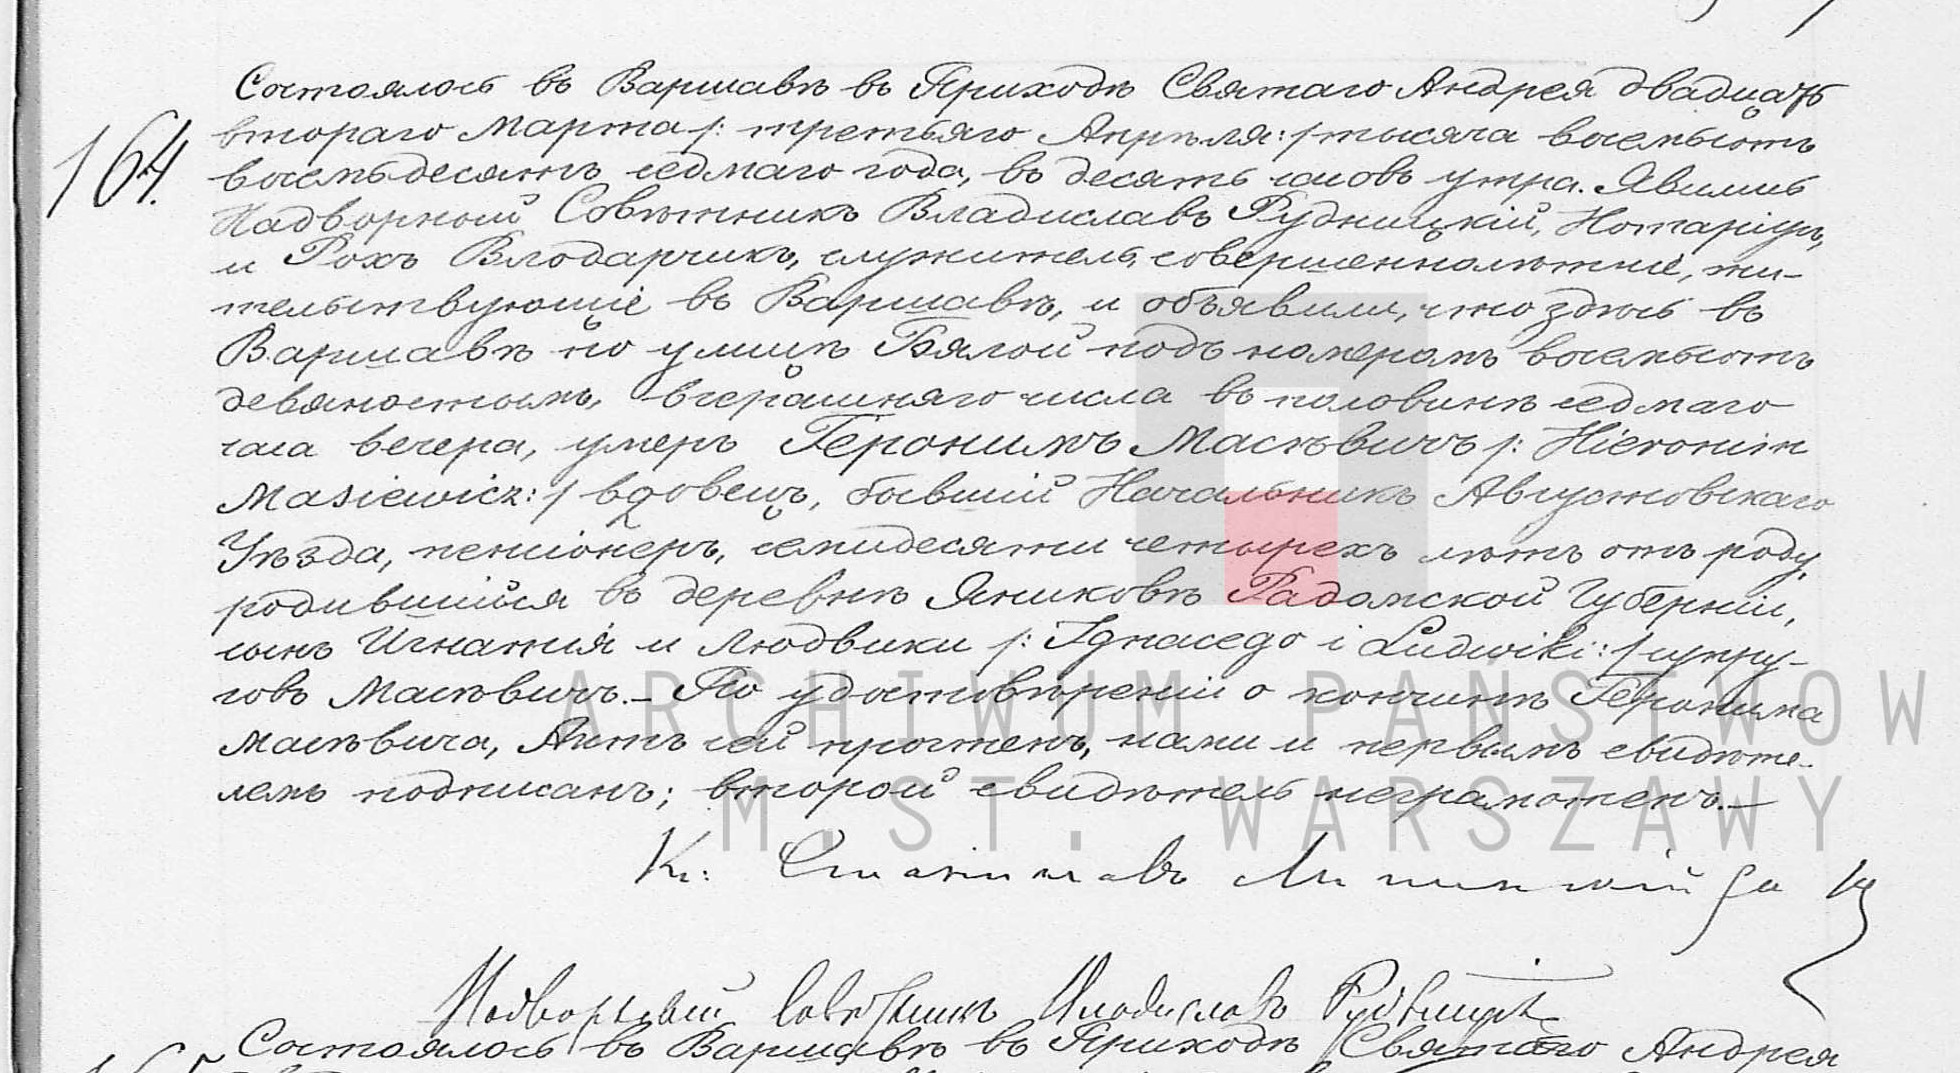 Состоялось въ Варшавѣ въ Приходѣ Святаго Андрея двадцать
164.
втораго Марта /: третьяго Апрѣля :/ тысяча восемьсотъ
восемьдесятъ седмаго года, въ десять часовъ утра. Явились
Надворный Совѣтникъ Владиславъ Рудницкій, Нотаріусъ,
и Рохъ Влодарчикъ, служитель, совершеннолѣтніе, жи-
тельствующіе въ Варшавѣ, и объявили, что здѣсь въ
Варшавѣ по улицѣ Бялой подъ номеромъ восемьсотъ
девяностымъ, вчерашняго числа въ половинѣ седмаго
часа вечера, умеръ Геронимъ Масѣвичъ /: Hieronim
Masiewicz :/ вдовецъ, бывшій Начальникъ Августовскаго
Уѣзда, пенсіонеръ, семидесяти четырехъ лѣтъ отъ роду,
родившійся въ деревнѣ Яниковѣ Радомской Губерніи,
сынъ Игнатія и Людвики /: Ignacego i Ludwiki :/ супру-
говъ Масѣвичъ. – По удостовѣреніи о кончинѣ Геронима
Масѣвича, Актъ сей прочтенъ, нами и первымъ свидѣте-
лемъ подписанъ; второй свидѣтель неграмотенъ. –
К: Станиславъ
Надворный Совѣтникъ Владиславъ Рудницкій
Состоялось въ Варшавѣ въ Приходѣ Святаго Андрея
165
ARCHIWUM PAŃSTWOW
M. ST. WARSZAWY